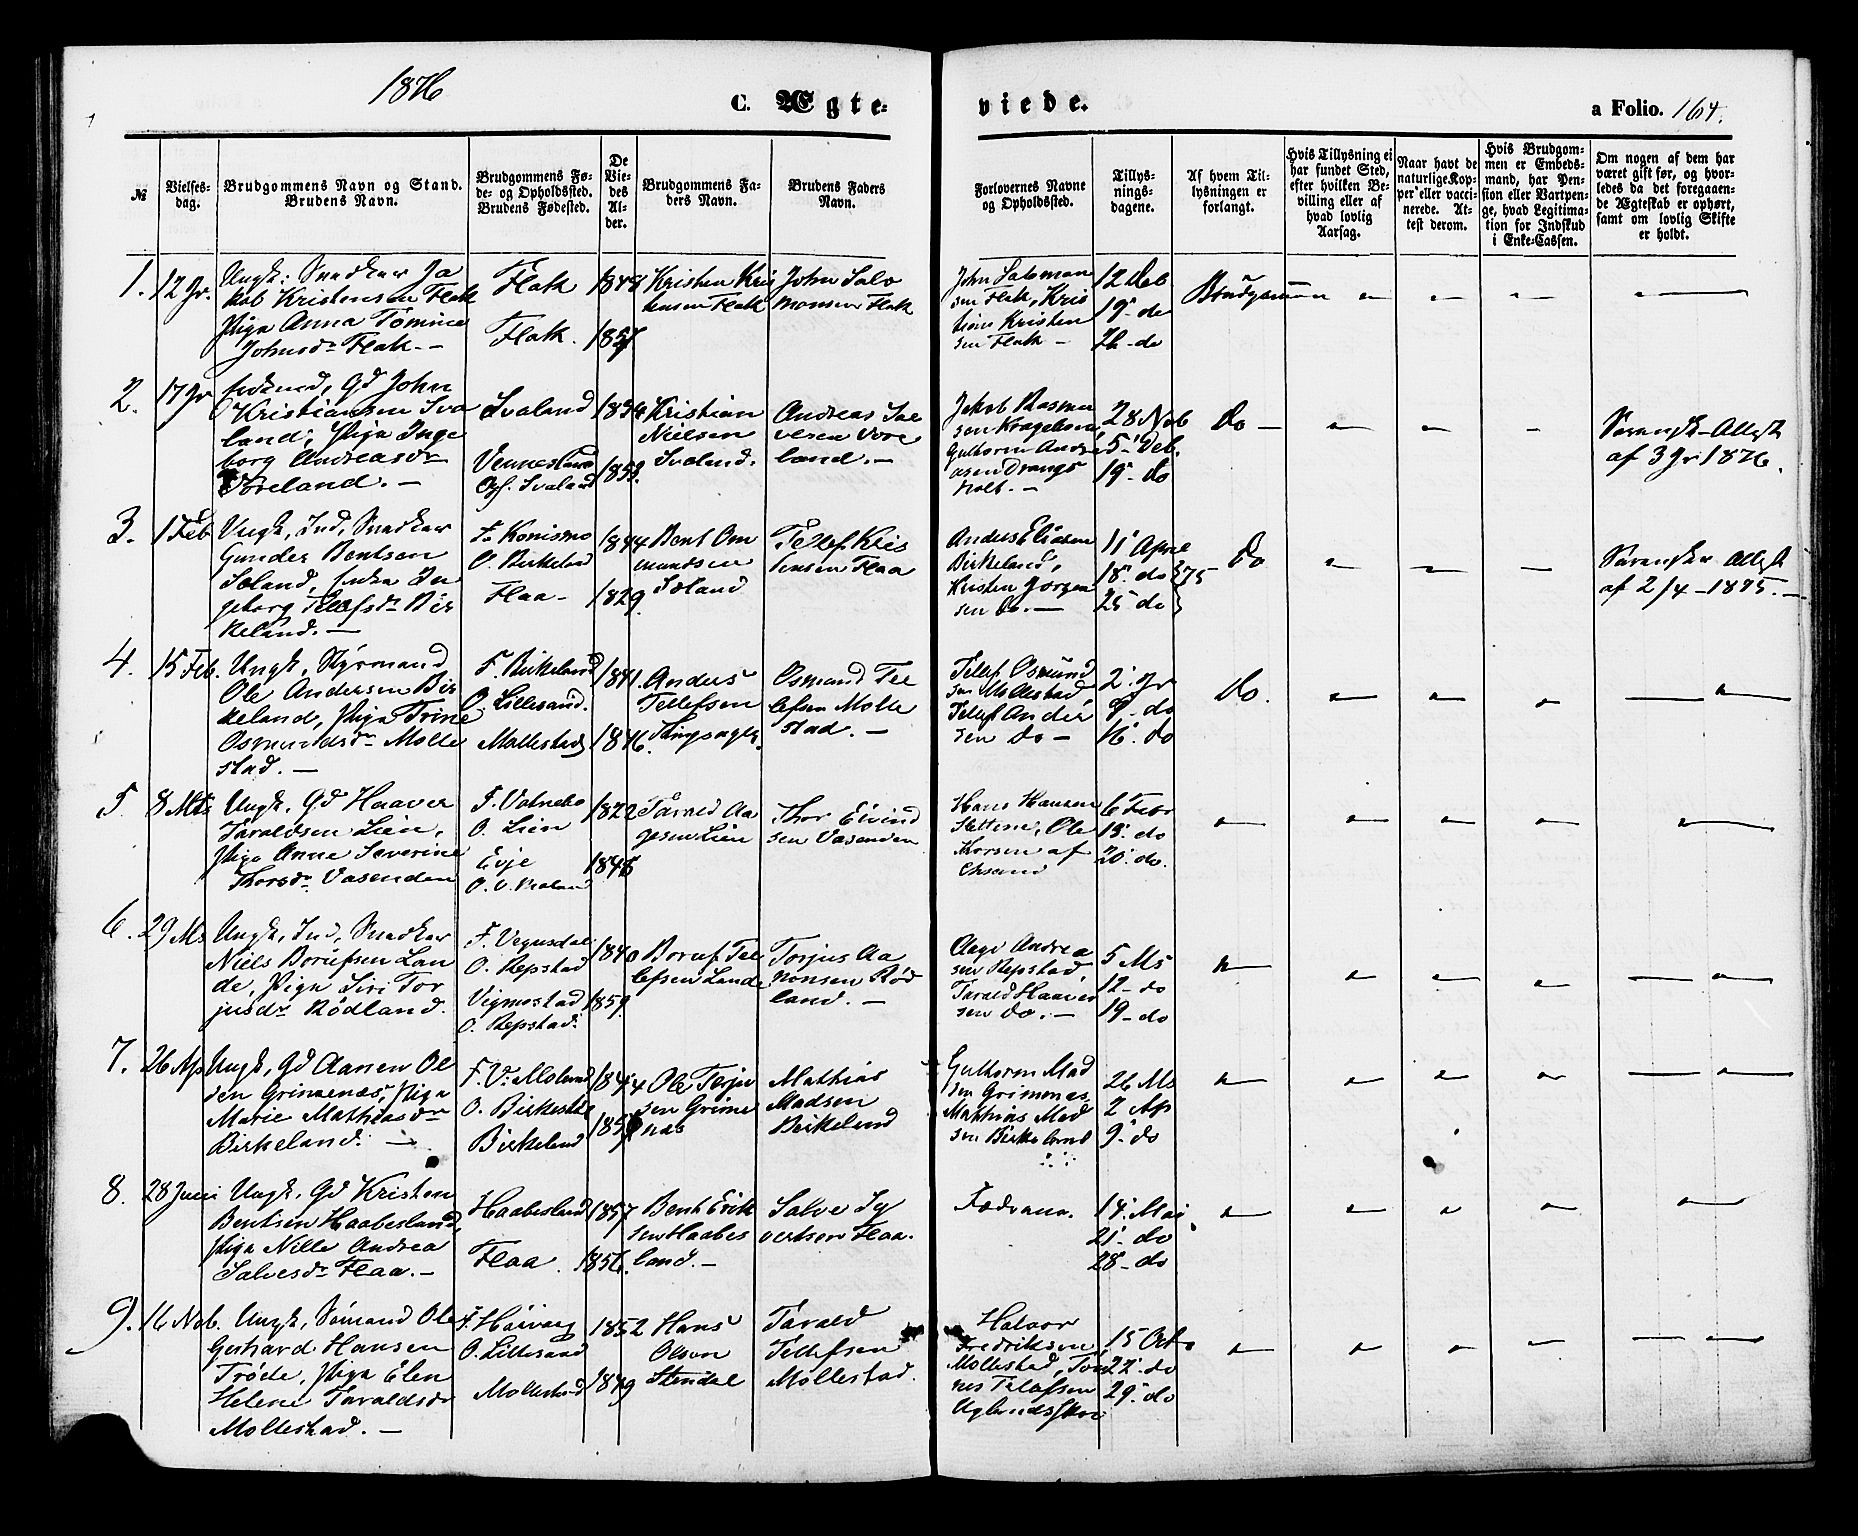 1876
C. Ægte-
viede.
a Folio. 164.
№
Vielses-
dag.
Brudgommens Navn og Stand.
Brudens Navn.
Brudgommens Fø-
de- og Opholdssted.
Brudens Fødested.
De
Vie-
des
Al-
der.
Brudgommens Fa-
ders Navn.
Brudens Faders
Navn.
Forlovernes Navne
og Opholdssted.
Tillys-
nings-
dagene.
Af hvem Til-
lysningen er
forlangt.
Hvis Tillysning ei
har fundet Sted,
efter hvilken Be-
villing eller af
hvad lovlig
Aarsag.
Naar havt de
naturlige Kop-
per eller vacci-
nerede. At-
test derom.
Hvis Brudgom-
men er Embeds-
mand, har Pen-
sion eller Vartpen-
ge, hvad Legitima-
tion for Indskud
i Enke-Cassen.
Om nogen af dem har
været gift før, og hvor-
ledes da det foregaaen-
de Ægteskab er ophørt,
samt om lovlig Skifte
er holdt.
1.
12 Jr.
Ungk: Snedker Ja
kob Kristensen Flak
Piga Anna Tomine
Johnsdr Flak. —
Flak
Flak.
1848
1857
Kristen Kri
stensen Flak
John Salo
monsen Flak
John Salomon
sen Flak, Kris
tian Kristen
sen Flak —
12 Deb
19 - do
26 - do
Brudgommen
2.
17 Jr
Enkemd, Gd John
Kristiansen Sva
land, Piga Inge
borg Andreasdr
Toreland. —
Svaland
Vennesland
Oph. Svaland
1834
1853.
Kristian
Nielsen
Svaland.
Andreas Sal
vesen Tore
land. —
Jakob Rasmu
sen Kragelsen
Guttorm Andre
asen Drangs
holt. —
28 Nob
5 Deb.
19 do
Do —
Sorensk. Attest
af 3 Jr 1876.
3.
1 Feb
Ungk, Ind, Snedker
Gunder Bentsen
Søland, Enka In
geborg Tellefsdr Bir
keland. —
F. Konismo
O. Birkeland
Flaa -
1844
1829.
Bent Om
mundsen
Søland
Tellef Kris
tensen Flaa
Anders Eliasen
Birkeland,
Kristen Jørgen
sen do. —
11 April
18. do } 75
25 do
Do
Sorensk. Attest
af 2/4 - 1875. —
4.
15 Feb.
Ungk, Styrmand
Ole Andersen Bir
keland, Piga Trine
Osmundsdr Molle
stad. —
F. Birkeland
O. Lillesand.
Mollestad
1841.
1846.
Anders
Tellefsen
Tingsager.
Osmund Tel
lefsen Molle
stad. —
Tellef Osmund
sen Mollestad
Tellef Ander
sen do —
2. Jr
9. do
16. do
Do.
5
8 Mts
Ungk. Gd Haaver
Taraldsen Lien,
Piga Anne Severine
Thorsdr Vasenden
F. Vatnebo
O. Lien
Evje
O. V. Moland
1822
1848
Tarald Aa
gesen Lien
Thor Eivind
sen Vasenden
Hans Hansen
Slettene, Ole
Thorsen af
Chsand
6 Febr
13. do
20. do.
6.
29 Ms
Ungk, Ind, Snedker
Niels Boriefsen Lan
de, Piga Siri Tor
jusdr Rødland.
F. Vegusdal
O. Repstad
Vigmostad
O. Repstad.
1840
1859.
Boruf Tel
lefsen Lande
Torjus Aa
nonsen Rød
land. —
Aage Andrea
sen Repstad,
Tarald Haaver
sen do. —
5 Ms
12 - do
19 - do
7.
26 Ap
Ungk, Gd Aanen Ol
sen Grimenæs, Piga
Marie Mathiasdr
Birkeland. —
F. V. Moland
O. Birkeland
Birkeland
1844
1857
Ole Terju
sen Grime
næs
Mathias
Madsen
Birkeland
Guttorm Mad
sen Grimenæs
Mathias Mad
sen Birkeland
26 Ms
2 Ap
9. do
8.
28 Juni
Ungk. Gd Kristen
Bentsen Haabesland,
Piga Nille Andrea
Salvesdr Flaa. —
Haabesland
Flaa.
1857
1856.
Bent Erik
sen Haabes
land. —
Salve Sy
vertsen Flaa.
Fædrene.
14. Mai
21. do
28 - do
9.
16 Nob.
Ungk, Sømand Ole
Gerhard Hansen
Trøde, Piga Elen
Helene Taraldsdr
Mollestad. —
F. Høivaag
O. Lillesand
Mollestad
1852
1849
Hans
Olsen
Stendal
Tarald
Tellefsen
Mollestad.
Halvor
Fredriksen
Mollestad, Tøn
nes Tellefsen
15 Octo
22. do
29. do